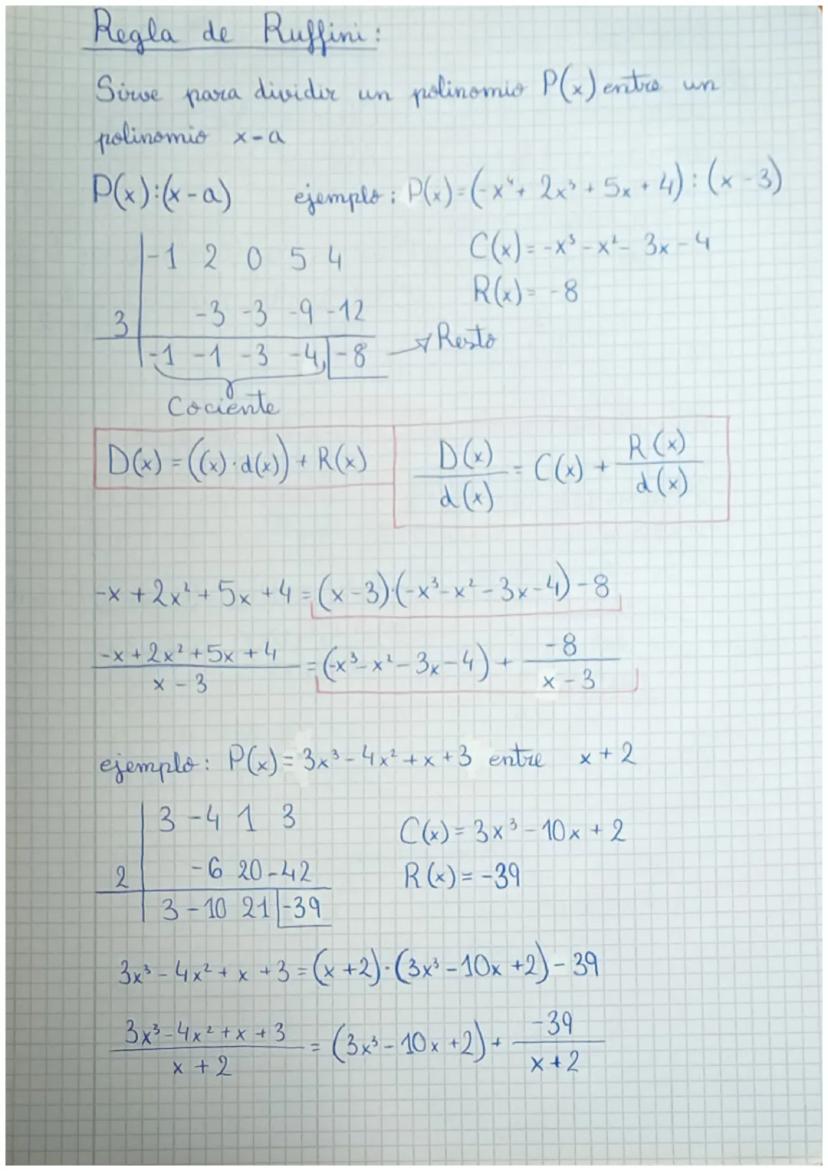 Regla de Ruffini:
Sirve para dividir un polinomio P(x) entre un
polinomio x-a
P(x):(x-a) ejemplo: P(x)=(-x⁴+ 2x³+ 5x + 4):(x-3)
-1 2 0 5 4 C(x)=-x³-x²- 3x-4
3 -3 -3 -9 -12 R(x)= -8
-1 -1 -3 -4 -8 → Resto
Cociente
D(x)=((x)·d(x))+R(x) D(x)/d(x) = C(x) + R(x)/d(x)
-x+2x²+5x+4=(x-3)·(-x³-x²-3x-4)-8
-x+2x²+5x+4/x-3 =(-x³-x²-3x-4)+ -8/x-3
ejemplo: P(x)=3x³-4x²+x+3 entre x+2
3 -4 1 3 C(x)=3x³-10x+2
2 -6 20 -42 R(x)=-39
3 -10 21 -39
3x³-4x²+x+3=(x+2)·(3x³-10x+2)-39
3x³-4x²+x+3/x+2 = (3x³-10x+2)+ -39/x+2